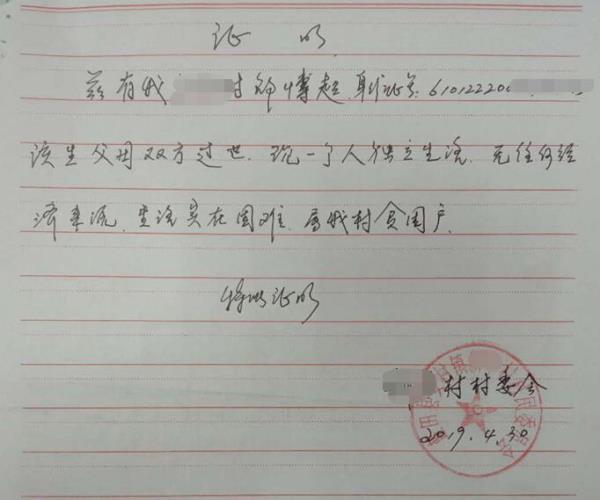 证 明
兹有我村博超,身份证号:61012220
该生父母双方过世.现一个人独立生活.无任何经
济来源.生活实在困难.属我村贫困户.
特此证明
村村委会
2019.4.30
田县 镇 民委员会